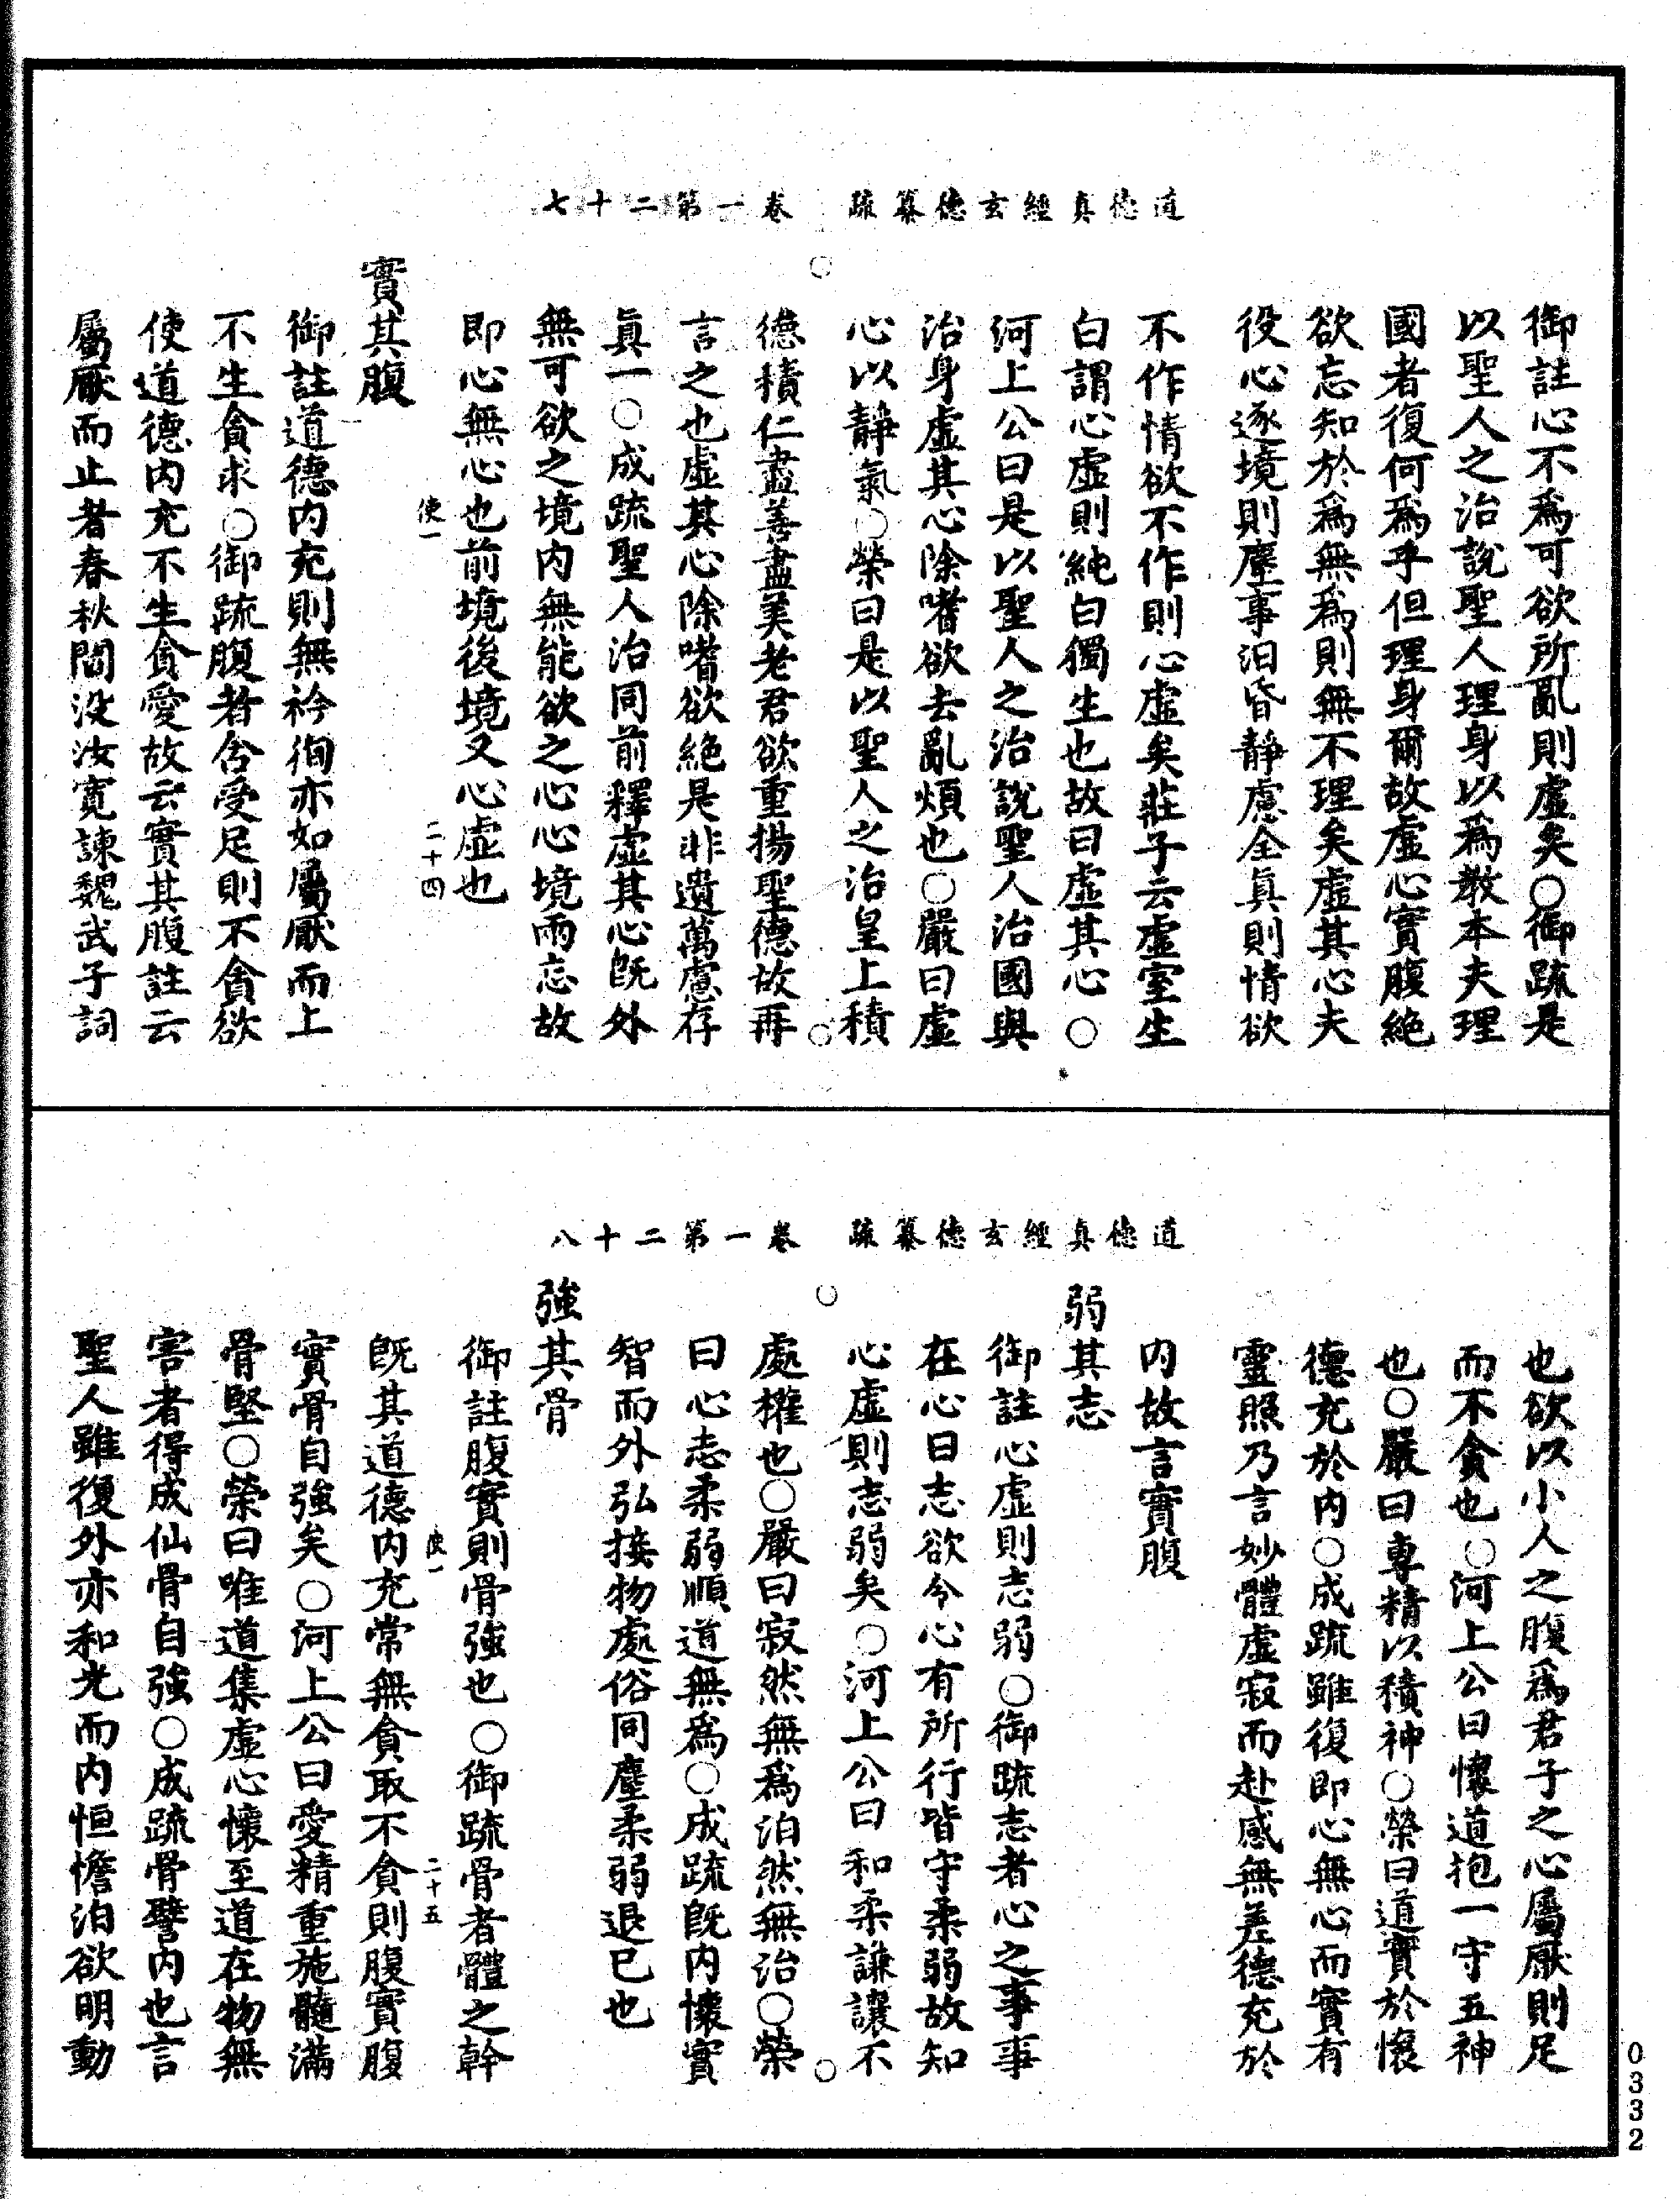 道德真經玄德纂疏　卷一第二十七
御註心不爲可欲所亂則虛矣○御疏是
以聖人之治說聖人理身以爲教本夫理
國者復何爲乎但理身爾故虛心實腹絶
欲忘知於爲無爲則無不理矣虛其心夫
役心逐境則塵事汩昏靜慮全眞則情欲
不作情欲不作則心虛矣莊子云虛室生
白謂心虛則純白獨生也故曰虛其心○
河上公曰是以聖人之治說聖人治國與
治身虛其心除嗜欲去亂煩也○嚴曰虛
心以靜氣○榮曰是以聖人之治皇上積
德積仁盡善盡美老君欲重揚聖德故再
言之也虛其心除嗜欲絶是非遺萬慮存
眞一○成疏聖人治同前釋虛其心旣外
無可欲之境內無能欲之心心境兩忘故
即心無心也前境後境又心虛也
使一　二十四
實其腹
御註道德內充則無矜徇亦如屬厭而上
不生貪求○御疏腹者含受足則不貪欲
使道德內充不生貪愛故云實其腹註云
屬厭而止者春秋閻没汝寬諫魏武子詞
道德真經玄德纂疏　卷一第二十八
也欲以小人之腹爲君子之心屬厭則足
而不貪也○河上公曰懷道抱一守五神
也○嚴曰專精以積神○榮曰道實於懷
德充於內○成疏雖復即心無心而實有
靈照乃言妙體虛寂而赴感無差德充於
內故言實腹
弱其志
御註心虛則志弱○御疏志者心之事事
在心曰志欲令心有所行皆守柔弱故知
心虛則志弱矣○河上公曰和柔謙讓不
處權也○嚴曰寂然無爲泊然無治○榮
曰心志柔弱順道無爲○成疏旣內懷實
智而外弘接物處俗同塵柔弱退已也
強其骨
御註腹實則骨強也○御疏骨者體之幹
使一　二十五
旣其道德內充常無貪取不貪則腹實腹
實骨自強矣○河上公曰愛精重施髓滿
骨堅○榮曰唯道集虛心懷至道在物無
害者得成仙骨自強○成疏骨譬內也言
聖人雖復外亦和光而內恒憺泊欲明動
0332